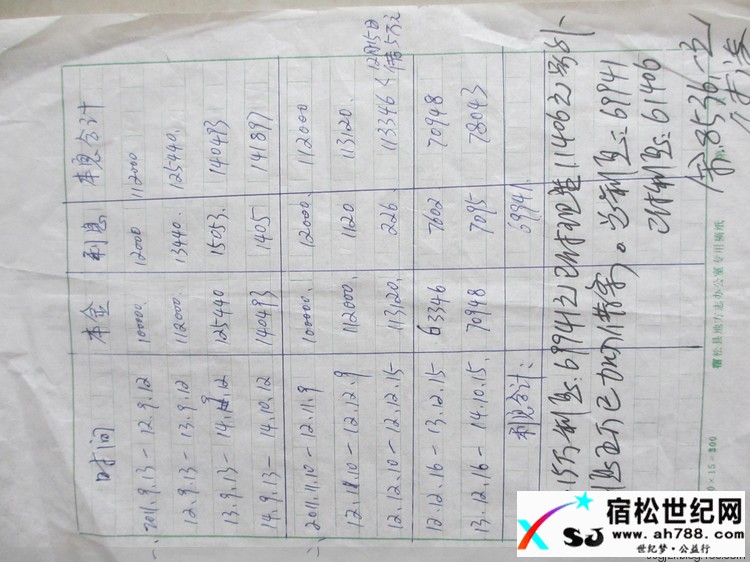 时间 本金 利息 本息合计
一、2011.9.13-12.9.12 100000. 12000 112000
12.9.13-13.9.12 112000. 13440. 125440.
13.9.13-14.9.12 125440 15053. 140493
14.9.13-14.10.12 140493 1405 141897
二、2011.11.10-12.11.9 100000. 12000. 112000
12.11.10-12.12.9 112000. 1120 113120.
12.12.10-12.12.15 113120. 226. 113346 12月15日
借5万元
12.12.16-13.12.15 63346 7602 70948
13.12.16-14.10.15. 70948 7095 78043
利息合计: 69941.
15万利息:69941
已加
。总利息:69941
已付利息:61406
余8536元
宿松县地方志办公室专用稿纸
15×20=300
宿松世纪网
XSJ
www.ah788.com
世纪梦·公益行